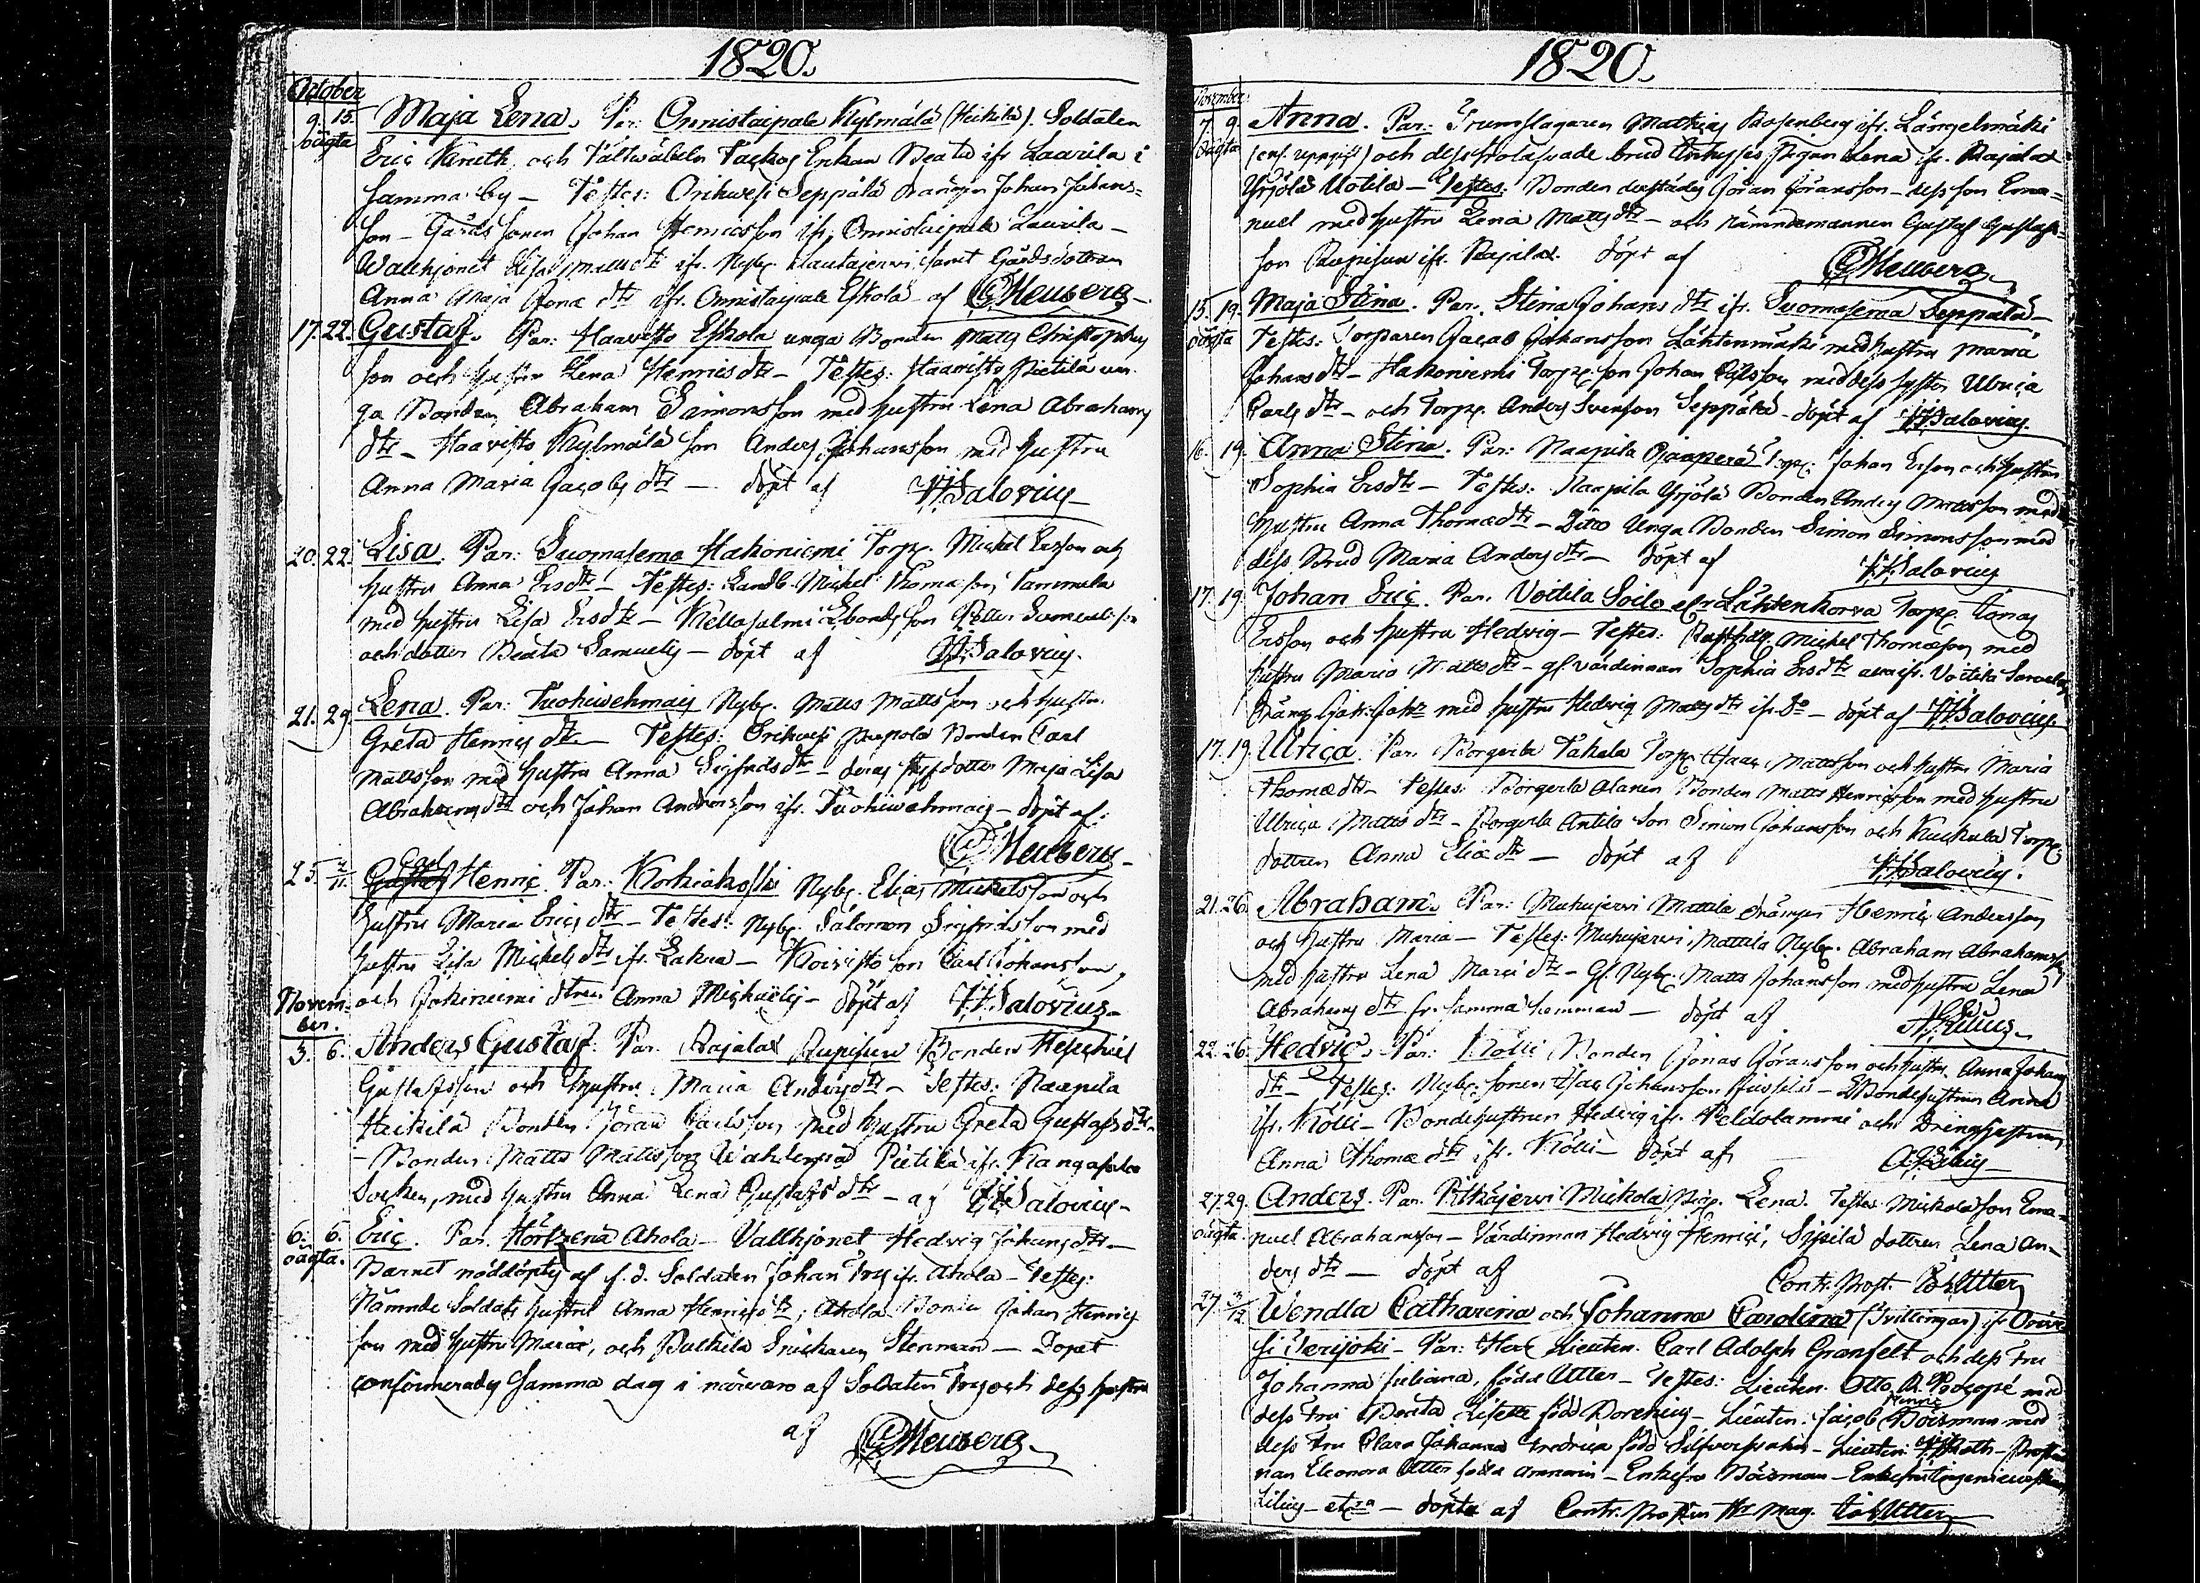 1820.
October
9. 15. Maja Lena. Par: Onnistaipale Kylmälä (Heikilä). Soldaten
oägta Eric Kneckt och Fältwäbeln Enkan Beata ifr. Laurila i
samma by – Testes: Orihvesi Seppälä drängen Johan Johans-
son – Gårdssonen Johan Henricsson ifr. Onnistaipale Laurila –
Wallhjonet Lisa Matts dtr ifr. Nybg. Rautajerwi samt Gårdsdottren
Anna Maja Jonæ dtr ifr. Onnistaipale Eskola af Heuberg
17. 22. Gustaf. Par: Haavisto Eskola unga Bonden Matts Christophers
son och hustru Lena Henrics dtr – Testes: Haavisto Pietilä un-
ga Bonden Abraham Simonsson med hustru Lena Abrahams
dtr – Haavisto Kylmälä son Anders Johansson med hustru
Anna Maria Jacobs dtr – döpt af Salovius
20. 22. Lisa. Par: Suomasema Hakoniemi Torp. Michel Ersson och
hustru Anna Ersdtr – Testes: Landb. Michel Thomasson Tammela
med hustru Lisa Ersdtr – Kellosalmi son Petter
och dotter Beata Samuels – döpt af Salovius.
21. 29 Lena. Par: Tuohiwehmais Nybg. Matts Mattsson och hustru
Greta Henrics dtr – Testes: Orihvesi Bonden Carl
Mattsson med hustru Anna Sigfrids dtr – deras styfdotter Maja Lisa
Abrahams dtr och Johan Andersson ifr. Tuohiwehmais – döpt af:
Heuberg
Carl
25. 2/11. Gustaf Henric. Par: Korkiakoski Nybg. Elias Mickelsson och
hustru Maria Erics dtr – Testes: Nybg. Salomon Sigfridsson med
hustru Lisa Mickels dtr ifr. Lakua – Koivisto son Carl Johansson,
och Jokiniemi dtren Anna Michaëlis – döpt af Salovius
Novem-
ber.
5. 6. Anders Gustaf. Par. Rajalax Bonden Heschiel
Gustafsson och hustru Maria Anders dtr – Testes: Naapila
Heikilä Bonden Göran Carlsson med hustru Greta Gustafs dtr
– Bonden Matts Mattsson Pietilä ifr. Kangasala
Socken, med hustru Anna Lena Gustafs dtr – af Salovius
6. 6. Eric. Par. Hörtzenä Ahola – Vallhjonet Hedvig Johans dtr –
oägta. Barnet nöddöpts af f. d. Soldaten Johan Frys ifr. Ahola – Testes:
Nämnde Soldats hustru Anna Henrics dtr, Ahola Bonde Johan Henrics
son med hustru Maria, och Snickaren Stenman – Dopet
confirmerades samma dag i närvaro af Soldaten Frys och dess hustru
af Heuberg
1820.
November.
7. 9. Anna. Par: Trumslagaren Mathias Rosenberg ifr. Längelmäki
oägta (enl. uppgift) och dess trolofvade brud Pigan Lena ifr. Rajalax
Yrjölä Uotila – Testes: Bonden derstädes Göran Göransson – dess son Ema-
nuel med hustru Lena Matts dtr – och Nämndemannen Gustaf Gustafs-
son ifr. Rajalax. Döpt af Heuberg
15. 19. Maja Stina. Par. Stina Johans dtr ifr. Suomasema Seppälä –
oägta Testes: Torparen Jacob Johansson Lähtenmäki med hustru Maria
Johans dtr – Hakoniemi Torp. son Johan Carlsson med dess syster Ulrica
Carls dtr – och Torp. Anders Svensson Seppälä – döpt af Salovius
16. 19. Anna Stina. Par: Naapila Torp. Johan Ersson och hustru
Sophia Ersdtr – Testes: Naapila Yrjölä Bonden Anders Mattsson med
hustru Anna Thomædtr – Ditto Unga Bonden Simon Simonsson med
dess Brud Maria Anders dtr – döpt af Salovius
17. 19 Johan Eric. Par. Voitila Soilo elr Lähtenkorva Torp. Jonas
Ersson och hustru Hedvig – Testes: Michel Thomasson med
hustru Maria Matts dtr – gl. värdinnan Sophia Ersdtr ifr. Voitila
Dräng med hustru Hedvig Matts dtr ifr. Do – döpt af Salovius
17. 19. Ulrica. Par. Borgerla Takala Torp. Isaac Mattsson och hustru Maria
Thomædtr – Testes: Borgerla Alanen Bonden Matts Henricsson med hustru
Ulrica Matts dtr – Borgerla Antila Son Simon Johansson och Torp.
dottren Anna Eliæ dtr – döpt af Salovius.
21. 26. Abraham. Par: Muhujerwi Mattila drängen Henric Andersson
och hustru Maria – Testes: Muhujerwi Mattila Nybg. Abraham Abrahamsson
med hustru Lena dtr – Gl. Nybg. Matts Johansson med hustru Lena
Abrahams dtr fr. samma hemman – döpt af
22. 26. Hedvig. Par: Kölli Bonden Jonas Göransson och hustru Anna Johans
dtr – Testes: Nybg. sonen Isac Johansson – Bondehustrun Anna
ifr. Kölli – Bondehustrun Hedvig ifr. Peldolammi och Drenghustrun
Anna Thomæ dtr ifr. Kölli – döpt af
27. 29. Anders. Par. Pitkäjerwi Mickola Pig. Lena. Testes Mickola son Ema-
oägta. nuel Abrahamsson – Värdinnan Hedvig Henrics, Sipilä dottren Lena An-
ders dtr – döpt af Contr. Prost. Utter
27. 3/12 Wendla Catharina och Johanna Carolina (Tvillingar) ifr Orive-
si Yerijoki – Par: Herr Lieuten. Carl Adolph Granfelt och dess Fru
Johanna Juliana, född Utter – Testes: Lieuten. Otto R. med
dess Fru Beata Lisette född – Lieuten: Jacob Henric Boisman med
dess Fru Clara Johanna Fredrica född – Lieuten –
nan Eleonora Utter född – Enkefru Boisman –
– etc – döpta af Contr. Prosten Hr Mag. Utter